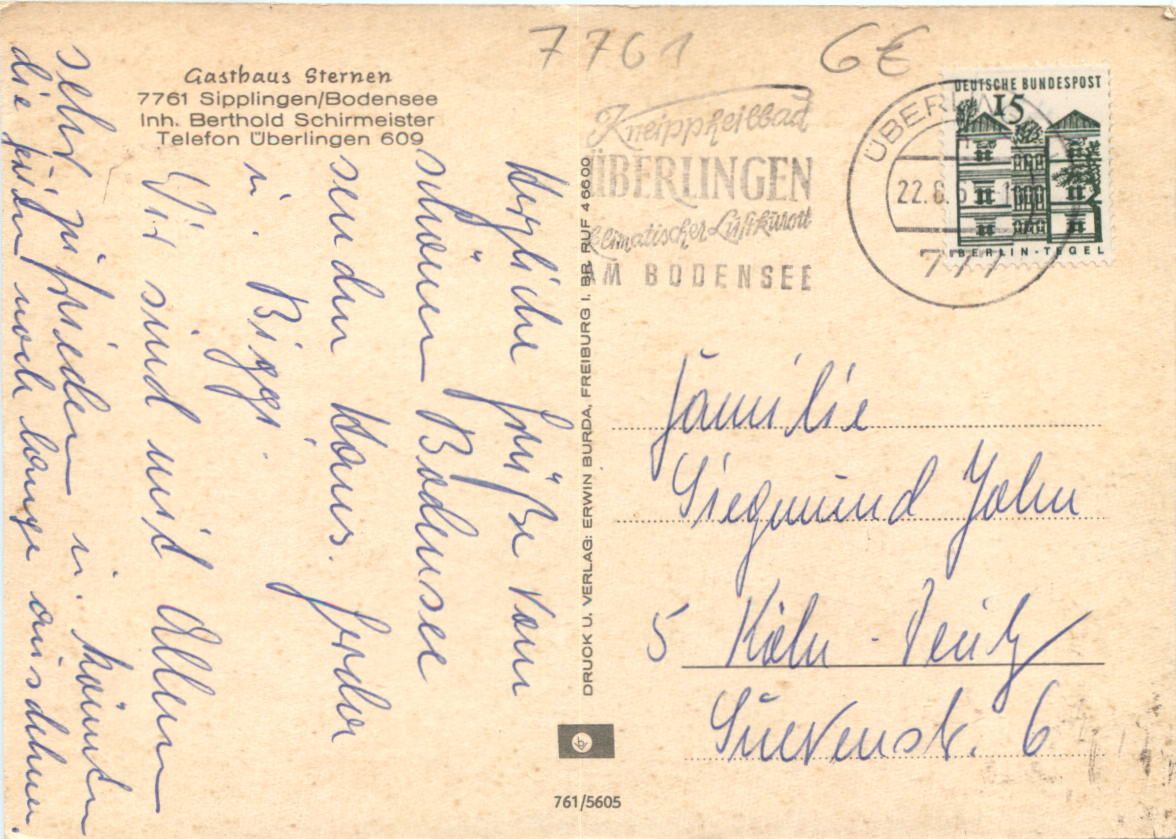 7761
6€
Gasthaus Sternen
7761 Sipplingen/Bodensee
Inh. Berthold Schirmeister
Telefon Überlingen 609
Herzliche Grüße vom
schönen Bodensee
senden Hans. Gerda
u. Biggi
Wir sind mit Allem
sehr zufrieden u. könnten
die noch lange ausdehnen.
DRUCK U. VERLAG: ERWIN BURDA, FREIBURG I. BR. RUF 46600
761/5605
Kneippheilbad
ÜBERLINGEN
klimatischer Luftkurort
AM BODENSEE
ÜBERLIN
22.6.6
777
DEUTSCHE BUNDESPOST
15
BERLIN-TEGEL
Familie
Siegmund John
5 Köln-Deutz
Suevenstr. 6